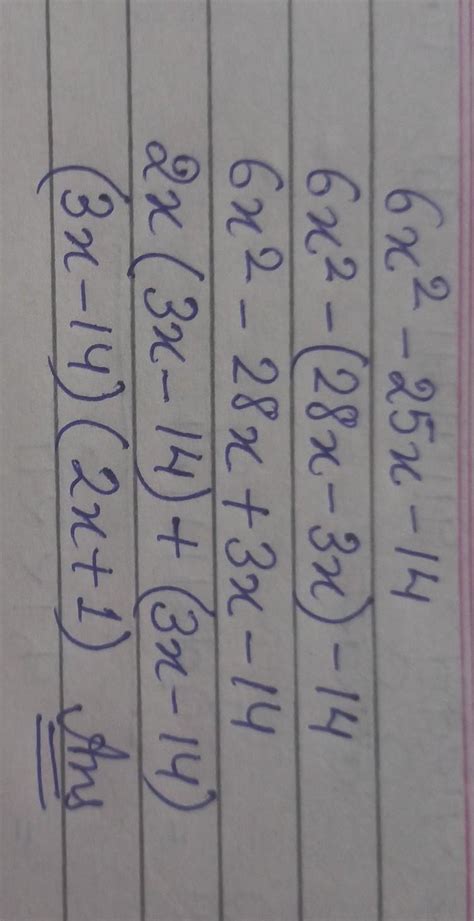 6x² - 25x - 14
6x² - (28x - 3x) - 14
6x² - 28x + 3x - 14
2x (3x - 14) + (3x - 14)
(3x - 14) (2x + 1) Ans